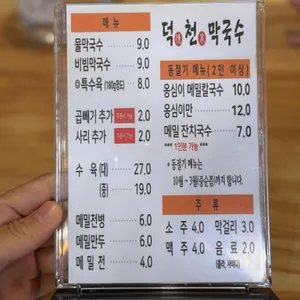 메뉴
물막국수 9.0
비빔막국수 9.0
◎특수육 (180g정도) 8.0
곱빼기 추가 2.0
사리 추가 2.0
수 육 (대) 27.0
(중) 19.0
메밀전병 6.0
메밀만두 6.0
메 밀 전 4.0
덕천막국수
동절기 메뉴 (2인 이상)
옹심이 메밀칼국수 10.0
옹심이만 12.0
메밀 잔치국수 7.0
*** 1인분 가능 ***
* 동절기 메뉴는
10월 ~ 3월(중순쯤)까지 합니다.
주 류
소 주 4.0 막걸리 3.0
맥 주 4.0 음 료 2.0
(콜라, 사이다)